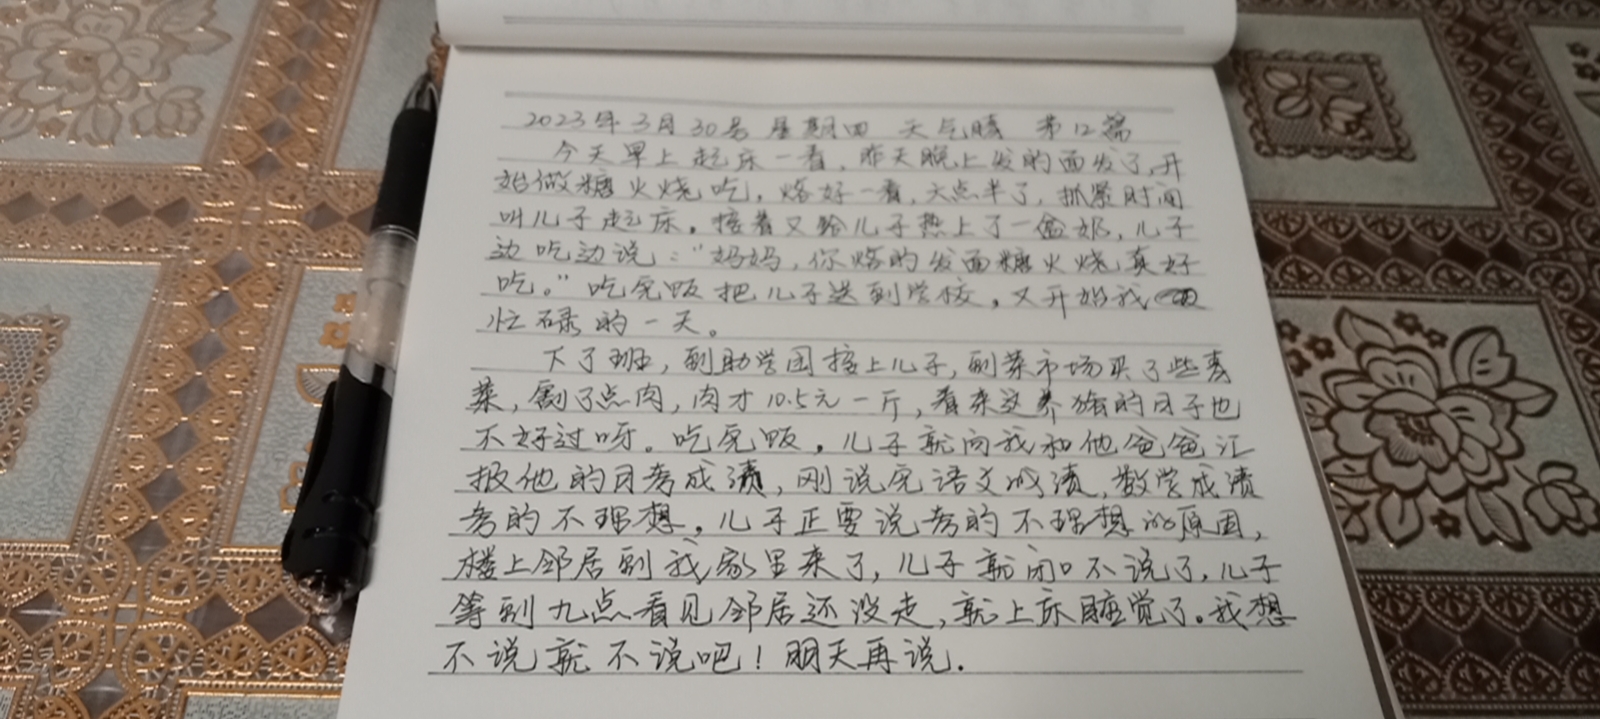 2023年3月30号 星期四 天气晴 第12篇
今天早上起床一看，昨天晚上发的面发了，开
始做糖火烧吃，烙好一看，六点半了，抓紧时间
叫儿子起床。接着又给儿子热上了一盒奶，儿子
边吃边说："妈妈，你烙的发面糖火烧真好
吃。"吃完饭把儿子送到学校，又开始我
忙碌的一天。
下了班，到助学园接上儿子，到菜市场买了些青
菜，割了点肉，肉才10.5元一斤，看来这养猪的日子也
不好过呀。吃完饭，儿子就向我和他爸爸汇
报他的月考成渍，刚说完语文成渍，数学成渍
考的不理想，儿子正要说考的不理想的原因，
楼上邻居到我家里来了，儿子就闭口不说了，儿子
等到九点看见邻居还没走，就上床睡觉了。我想
不说就不说吧！明天再说.